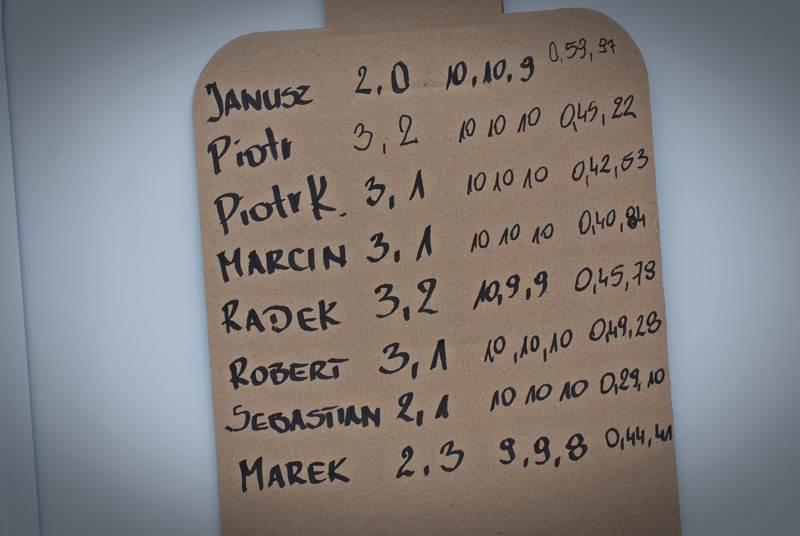 JANUSZ 2,0 10,10,9 0,59,97
Piotr 3,2 10 10 10 0,45,22
Piotr K. 3,1 10 10 10 0,42,53
MARCIN 3,1 10 10 10 0,40,84
RADEK 3,2 10,9,9 0,45,79
ROBERT 3,1 10,10,10 0,49,28
SEBASTIAN 2,1 10 10 10 0,29,10
MAREK 2,3 9,9,8 0,44,41